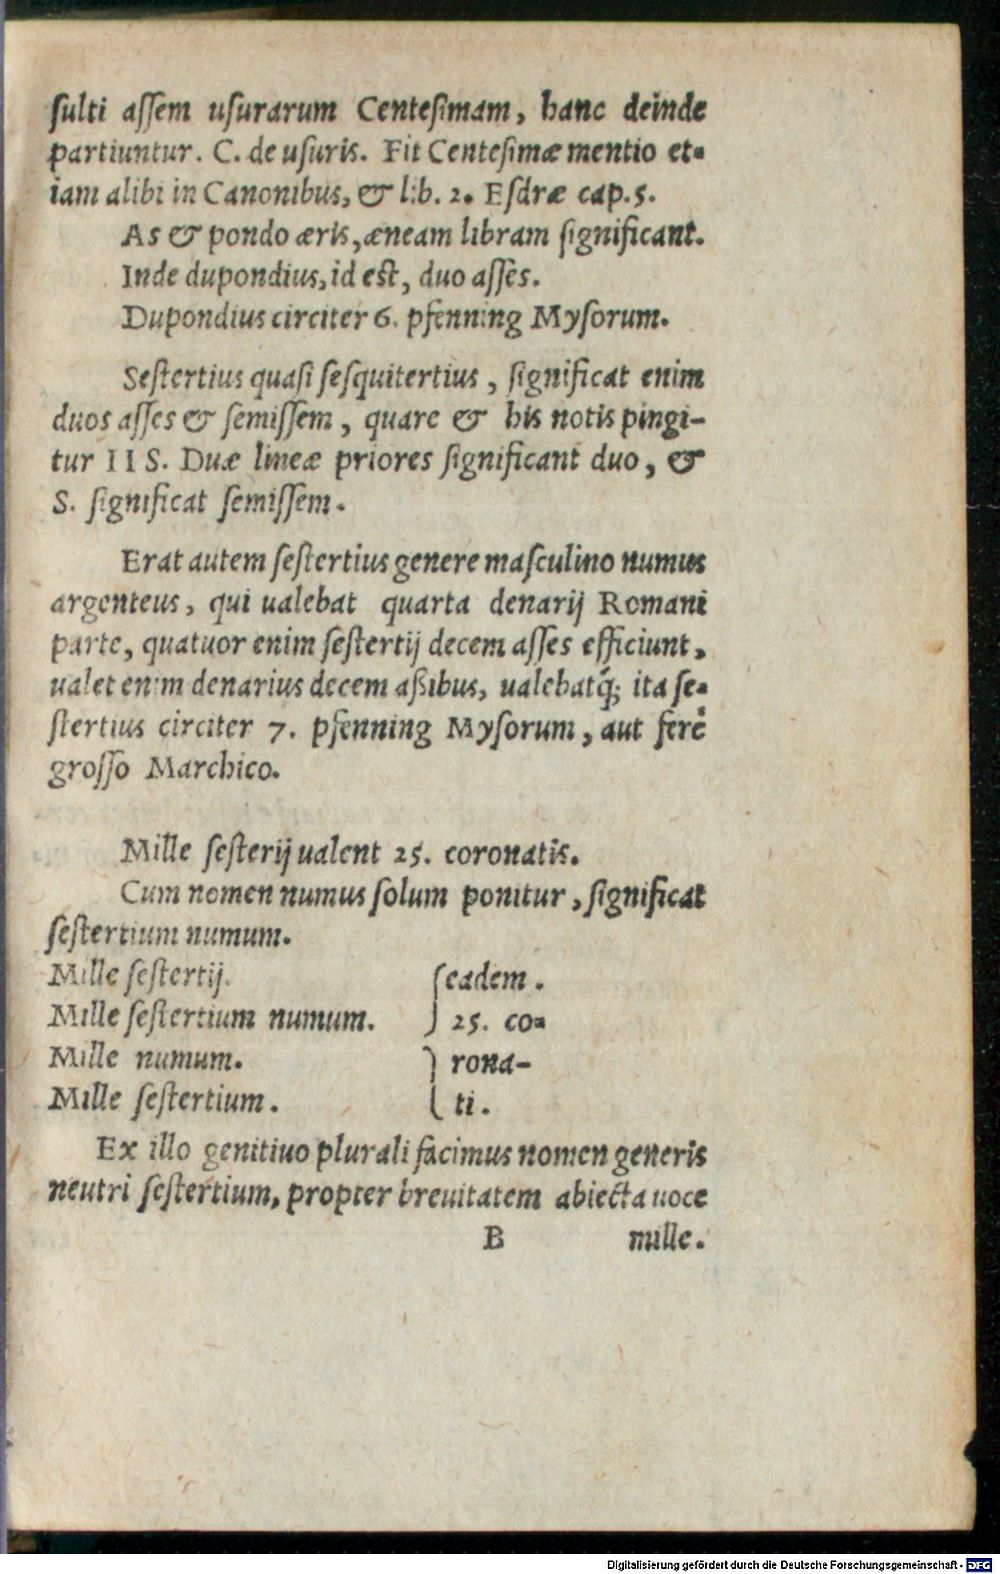 ſulti aſſem uſurarum Centeſimam, hanc deinde
partiuntur. C. de uſuris. Fit Centeſimæ mentio et-
iam alibi in Canonibus, & lib. 2. Eſdræ cap. 5.
As & pondo æris, æneam libram ſignificant.
Inde dupondius, id eſt, duo aſſes.
Dupondius circiter 6. pfenning Myſorum.
Seſtertius quaſi ſeſquitertius, ſignificat enim
duos aſſes & ſemiſſem, quare & his notis pingi-
tur IIS. Duæ lineæ priores ſignificant duo, &
S. ſignificat ſemiſſem.
Erat autem ſeſtertius genere maſculino numus
argenteus, qui ualebat quarta denarij Romani
parte, quatuor enim ſeſtertij decem aſſes efficiunt,
ualet enim denarius decem aßibus, ualebatq́; ita ſe-
ſtertius circiter 7. pfenning Myſorum, aut ferè
groſſo Marchico.
Mille ſeſterij ualent 25. coronatis.
Cum nomen numus ſolum ponitur, ſignificat
ſeſtertium numum.
Mille ſeſtertij. eadem.
Mille ſeſtertium numum. 25. co-
Mille numum. rona-
Mille ſeſtertium. ti.
Ex illo genitiuo plurali facimus nomen generis
neutri ſeſtertium, propter breuitatem abiecta uoce
B mille.
Digitalisierung gefördert durch die Deutsche Forschungsgemeinschaft - DFG